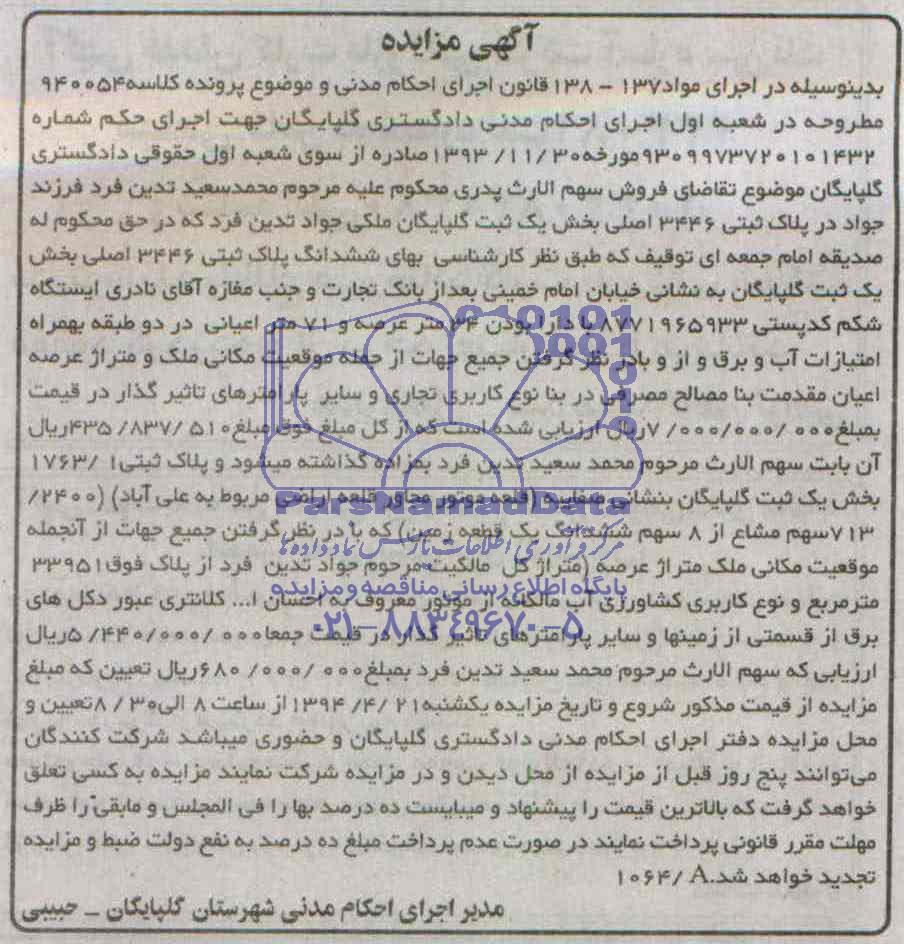 آگهی مزایده
بدینوسیله در اجرای مواد۱۳۷ - ۱۳۸ قانون اجرای احکام مدنی و موضوع پرونده کلاسه۹۴۰۰۵۴
مطروحه در شعبه اول اجرای احکام مدنی دادگستری گلپایگان جهت اجرای حکم شماره
۹۳۰۹۹۷۳۷۲۰۱۰۱۴۳۲مورخه۱۳۹۳/۱۱/۳۰صادره از سوی شعبه اول حقوقی دادگستری
گلپایگان موضوع تقاضای فروش سهم الارث پدری محکوم علیه مرحوم محمدسعید تدین فرد فرزند
جواد در پلاک ثبتی ۳۴۴۶ اصلی بخش یک ثبت گلپایگان ملکی جواد تدین فرد که در حق محکوم له
صدیقه امام جمعه ای توقیف که طبق نظر کارشناسی بهای ششدانگ پلاک ثبتی ۳۴۴۶ اصلی بخش
یک ثبت گلپایگان به نشانی خیابان امام خمینی بعداز بانک تجارت و جنب مغازه آقای نادری ایستگاه
شکم کدپستی ۸۷۷۱۹۶۵۹۳۳ با دارا بودن ۳۴ متر عرصه و ۷۱ متر اعیانی در دو طبقه بهمراه
امتیازات آب و برق و از و بادر نظر گرفتن جمیع جهات از جمله موقعیت مکانی ملک و متراژ عرصه
اعیان مقدمت بنا مصالح مصرفی در بنا نوع کاربری تجاری و سایر پارامترهای تاثیر گذار در قیمت
بمبلغ۷/۰۰۰/۰۰۰/۰۰۰ریال ارزیابی شده است که از کل مبلغ فوق مبلغ۴۳۵/۸۳۷/۵۱۰ریال
آن بابت سهم الارث مرحوم محمد سعید تدین فرد بمزاده گذاشته میشود و پلاک ثبتی۱ /۱۷۶۳
بخش یک ثبت گلپایگان بنشانی صفاییه (قلعه موتور مجاور قلعه اراضی مربوط به علی آباد) (۲۴۰۰/
۷۱۳سهم مشاع از ۸ سهم ششدانگ یک قطعه زمین) که با در نظر گرفتن جمیع جهات از آنجمله
موقعیت مکانی ملک متراژ عرصه (متراژ کل مالکیت مرحوم جواد تدین فرد از پلاک فوق۳۳۹۵۱
مترمربع و نوع کاربری کشاورزی آب مالکانه از موتور معروف به احسان ا... کلانتری عبور دکل های
برق از قسمتی از زمینها و سایر پارامترهای تاثیر گذار در قیمت جمعا۵/۴۴۰/۰۰۰/۰۰۰ریال
ارزیابی که سهم الارث مرحوم محمد سعید تدین فرد بمبلغ۶۸۰/۰۰۰/۰۰۰ریال تعیین که مبلغ
مزایده از قیمت مذکور شروع و تاریخ مزایده یکشنبه۱۳۹۴/۴/۲۱ از ساعت ۸ الی۸/۳۰تعیین و
محل مزایده دفتر اجرای احکام مدنی دادگستری گلپایگان و حضوری میباشد شرکت کنندگان
می‌توانند پنج روز قبل از مزایده از محل دیدن و در مزایده شرکت نمایند مزایده به کسی تعلق
خواهد گرفت که بالاترین قیمت را پیشنهاد و میبایست ده درصد بها را فی المجلس و مابقی را ظرف
مهلت مقرر قانونی پرداخت نمایند در صورت عدم پرداخت مبلغ ده درصد به نفع دولت ضبط و مزایده
تجدید خواهد شد.A /۱۰۶۴
مدیر اجرای احکام مدنی شهرستان گلپایگان _ حبیبی
ParsNamadData
مرکز فرآوری اطلاعات پارس نماد داده ها
پایگاه اطلاع رسانی مناقصه و مزایده
۰۲۱-۸۸۳۴۹۶۷۰-۵